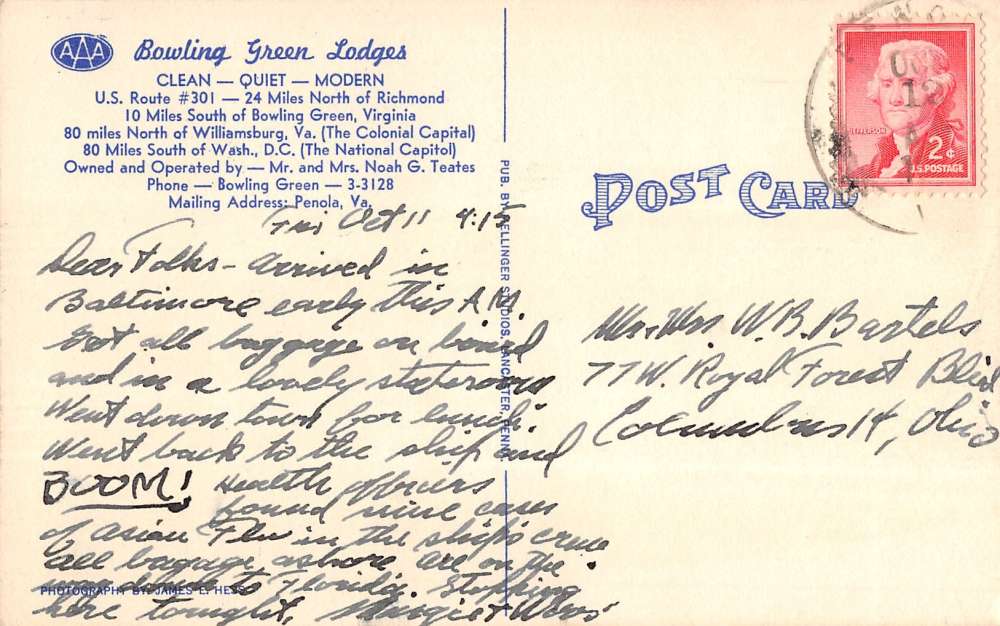 AAA Bowling Green Lodges
CLEAN — QUIET — MODERN
U.S. Route #301 — 24 Miles North of Richmond
10 Miles South of Bowling Green, Virginia
80 miles North of Williamsburg, Va. (The Colonial Capital)
80 Miles South of Wash., D.C. (The National Capitol)
Owned and Operated by — Mr. and Mrs. Noah G. Teates
Phone — Bowling Green — 3-3128
Mailing Address: Penola, Va.
Fri Oct 11 4:15
Dear Folks - Arrived in
Baltimore early this A.M.
Got all baggage on board
and in a lovely stateroom
Went down town for lunch.
Went back to the ship and
BOOM! Health officers
found nine cases
of asian Flu in the ship's crew
all baggage ashore are on the
way down to Florida. Stopping
here tonight,
PHOTOGRAPHY BY JAMES E. HESS
PUB. BY MELLINGER STUDIOS, LANCASTER, PENNA.
POST CARD
OCT
12
JEFFERSON
2¢
U.S. POSTAGE
Mr. & Mrs. W.B. Bartels
77 W. Royal Forest Blvd
Columbus 14, Ohio